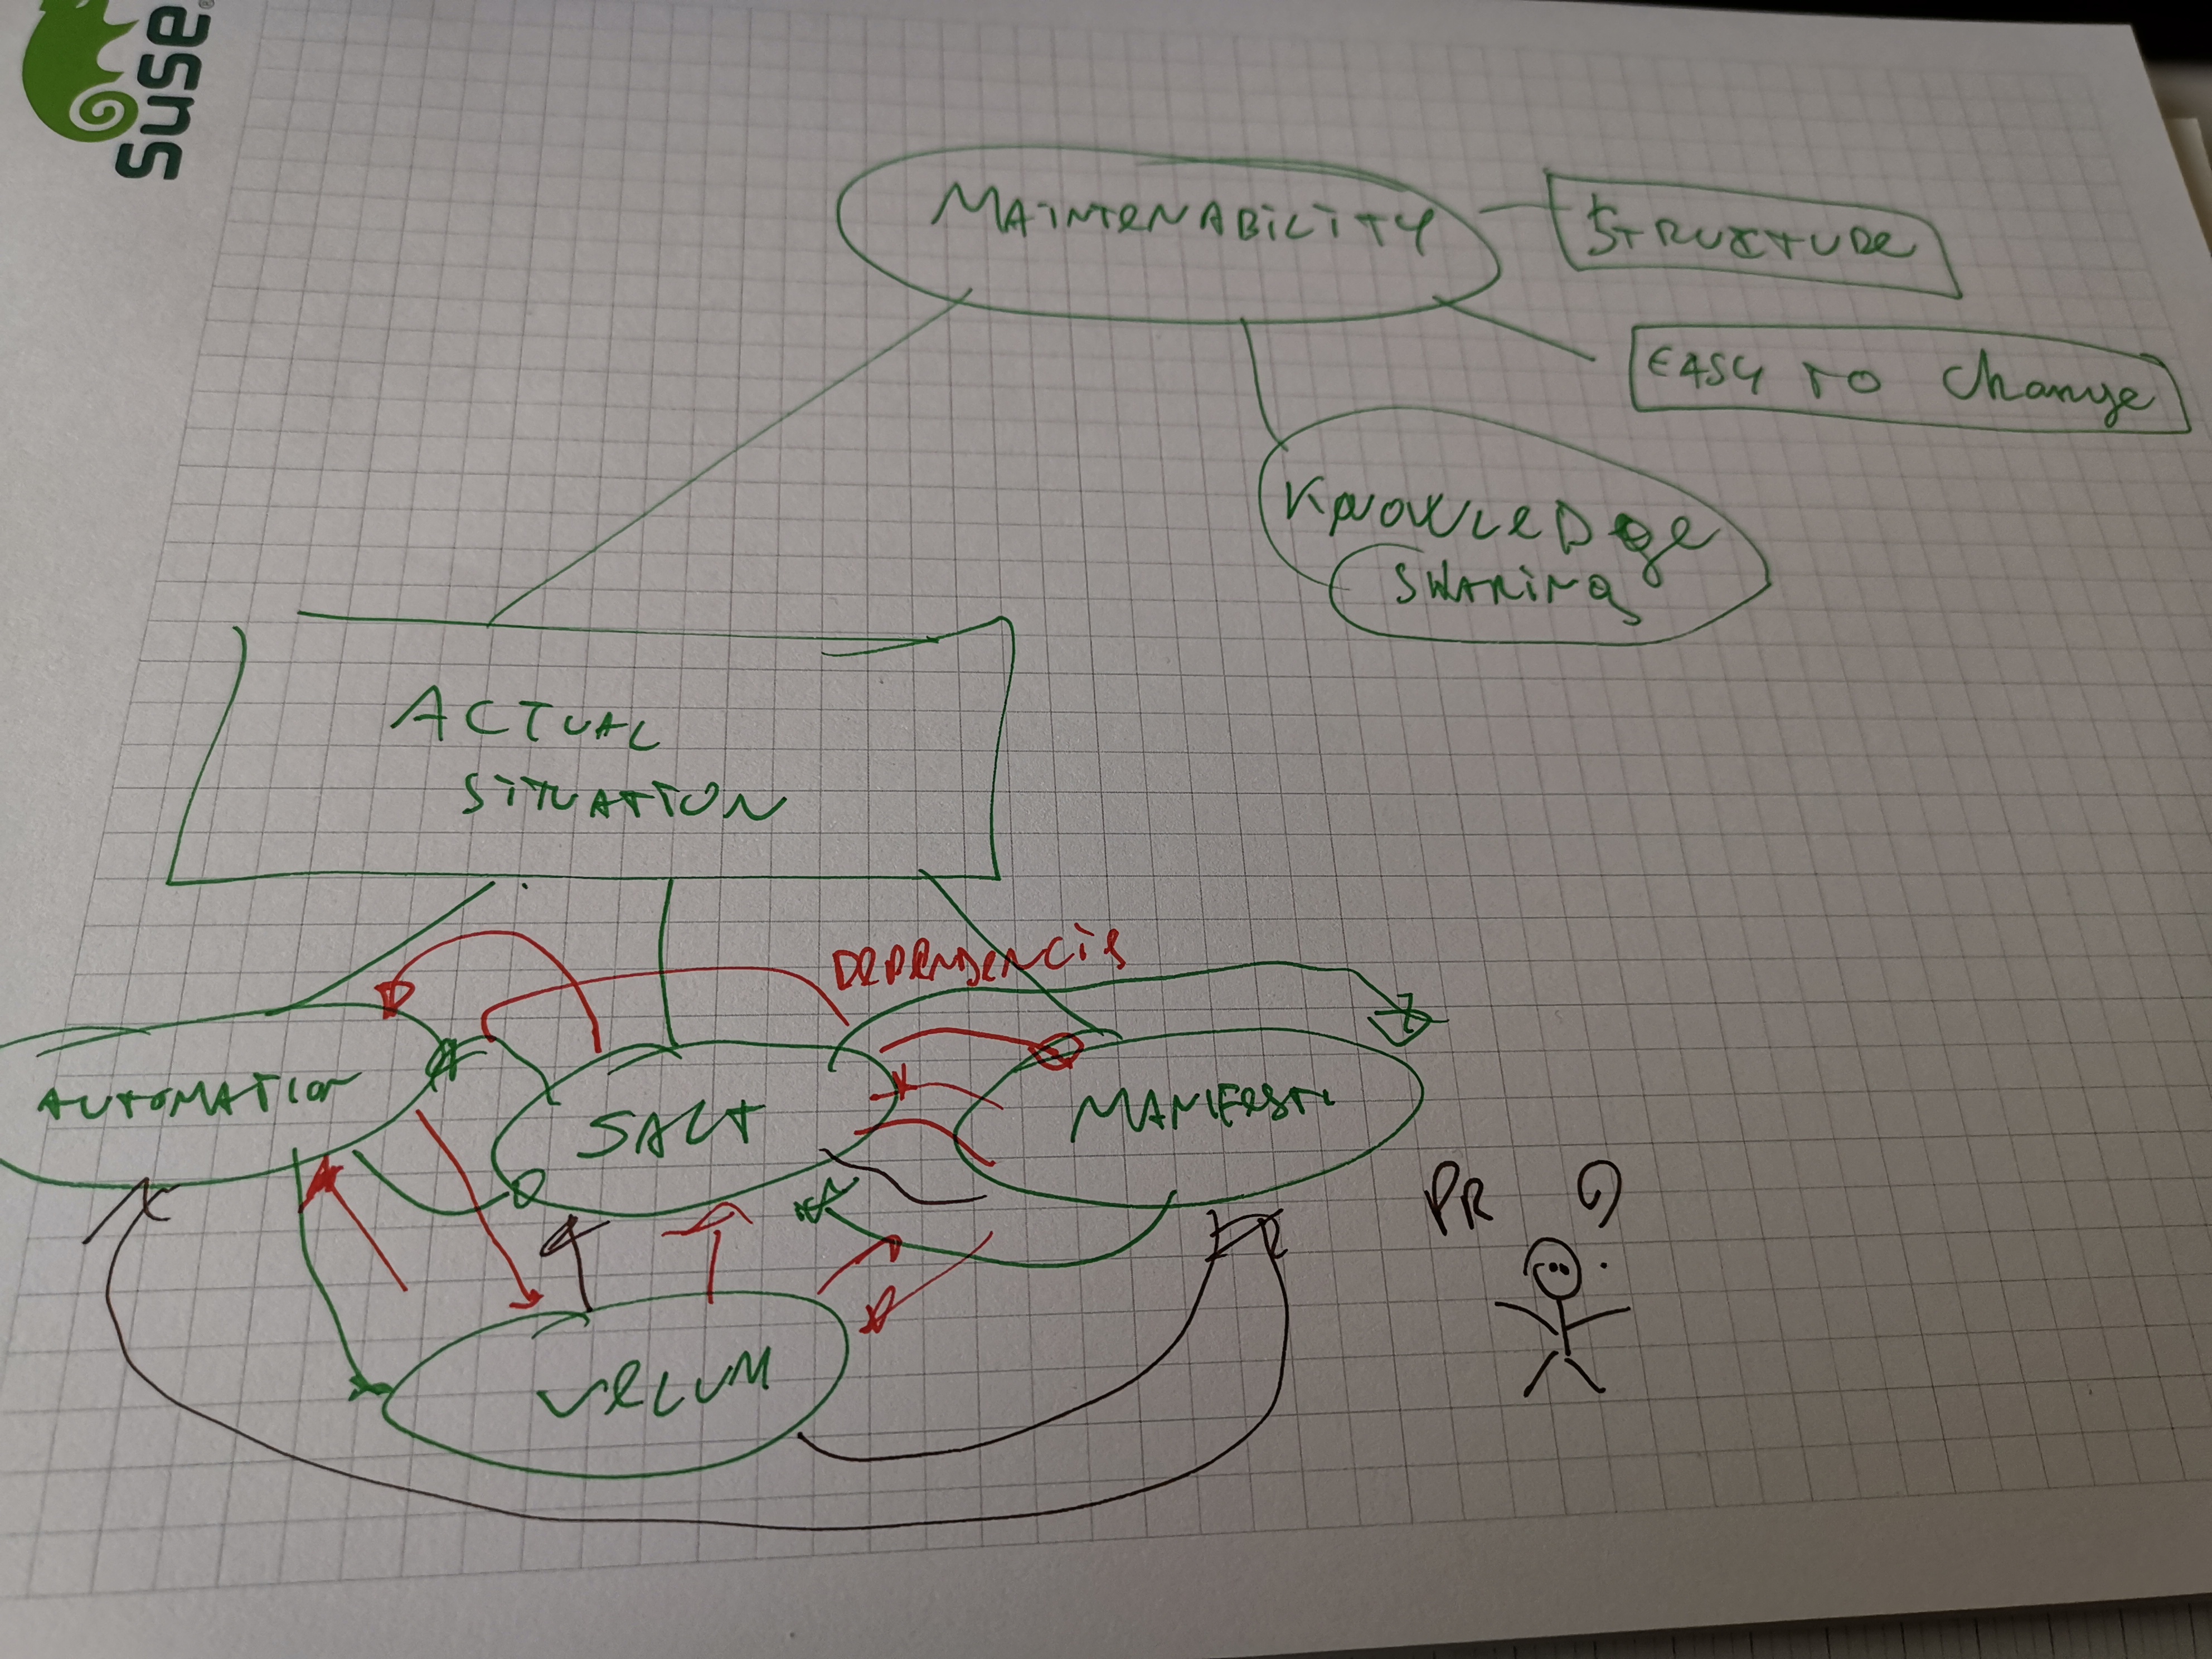 SUSE
MAINTENABILITY
STRUCTURE
EASY TO Change
KNOWLEDGE
SHARING
ACTUAL
SITUATION
DEPENDENCIES
AUTOMATION
SALT
MANIFESTI
PR ?
VELUM